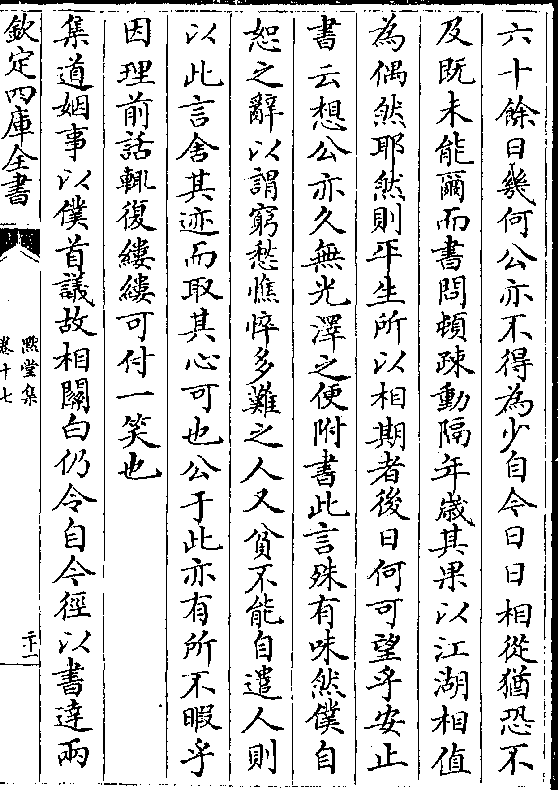 六十餘日幾何公亦不得為少自今日日相從猶恐不
及既未能爾而書問頓疎動隔年歲其果以江湖相值
為偶然耶然則平生所以相期者後日何可望乎安止
書云想公亦久無光澤之便附書此言殊有味然僕自
恕之辭以謂窮愁憔悴多難之人又貧不能自遣人則
以此言舍其迹而取其心可也公于此亦有所不暇乎
因理前話輒復縷縷可付一笑也
集道姻事以僕首議故相關白仍令自今徑以書達兩
欽定四庫全書
默堂集
卷十七
二十二